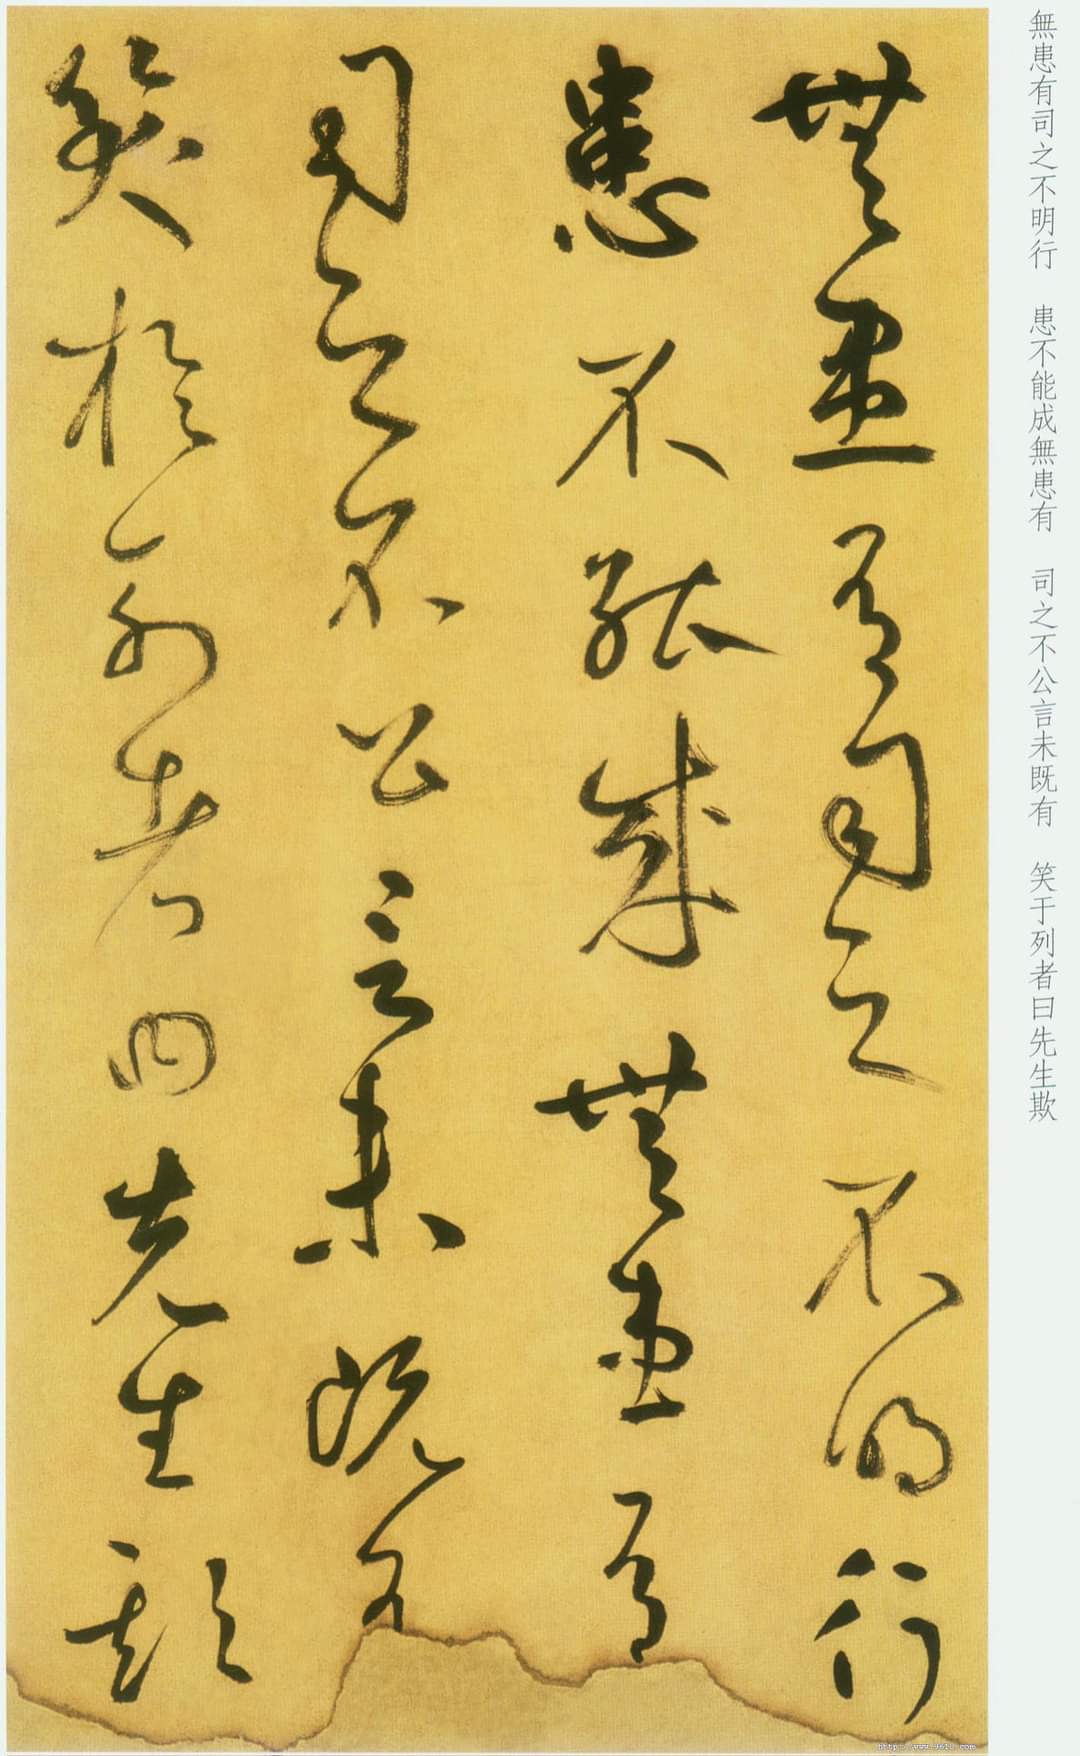 無患有司之不明行 患不能成無患有 司之不公言未既有 笑于列者曰先生欺
無患有司之不明行
患不能成無患有
司之不公言未既有
笑於列者曰先生欺
http://www.9610.com